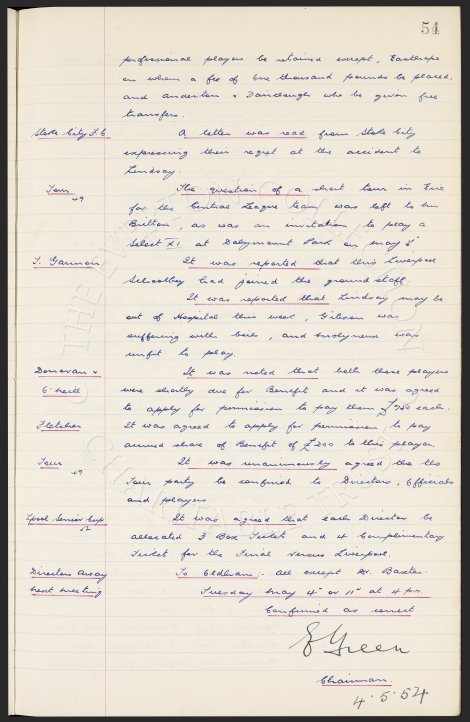 54
professional players be retained except, Easthope
on whom a fee of One thousand pounds be placed,
and Anderton & Fairclough who be given free
transfers.
Stoke City F.C A letter was read from Stoke City
expressing their regret at the accident to
Lindsay.
Tour The question of a short tour in Eire
49 for the Central League team was left to Mr
Britton, as was an invitation to play a
Select XI at Dalymount Park on May
T. Gannon It was reported that this Liverpool
Schoolboy had joined the ground staff.
It was reported that Lindsay may be
out of Hospital this week, Gibson was
suffering with boils, and Molyneux was
unfit to play.
Donovan & It was noted that both these players
O'Neill were shortly due for Benefit and it was agreed
to apply for permission to pay them £750 each.
Fletcher It was agreed to apply for permission to pay
accrued share of Benefit of £200 to this player.
Tour It was unanimously agreed tha the
49 Tour party be confined to Directors, Officials
and players
Lpool Senior Cup It was agreed that each Director be
allocated 3 Box Tickets and 4 Complimentary
Ticket for the Final versus Liverpool.
Directors Away To Oldham. All except Dr. Baxter.
Next Meeting Tuesday May 4th or 11th at 4 p.m.
Confirmed as correct
E Green
Chairman.
4.5.54